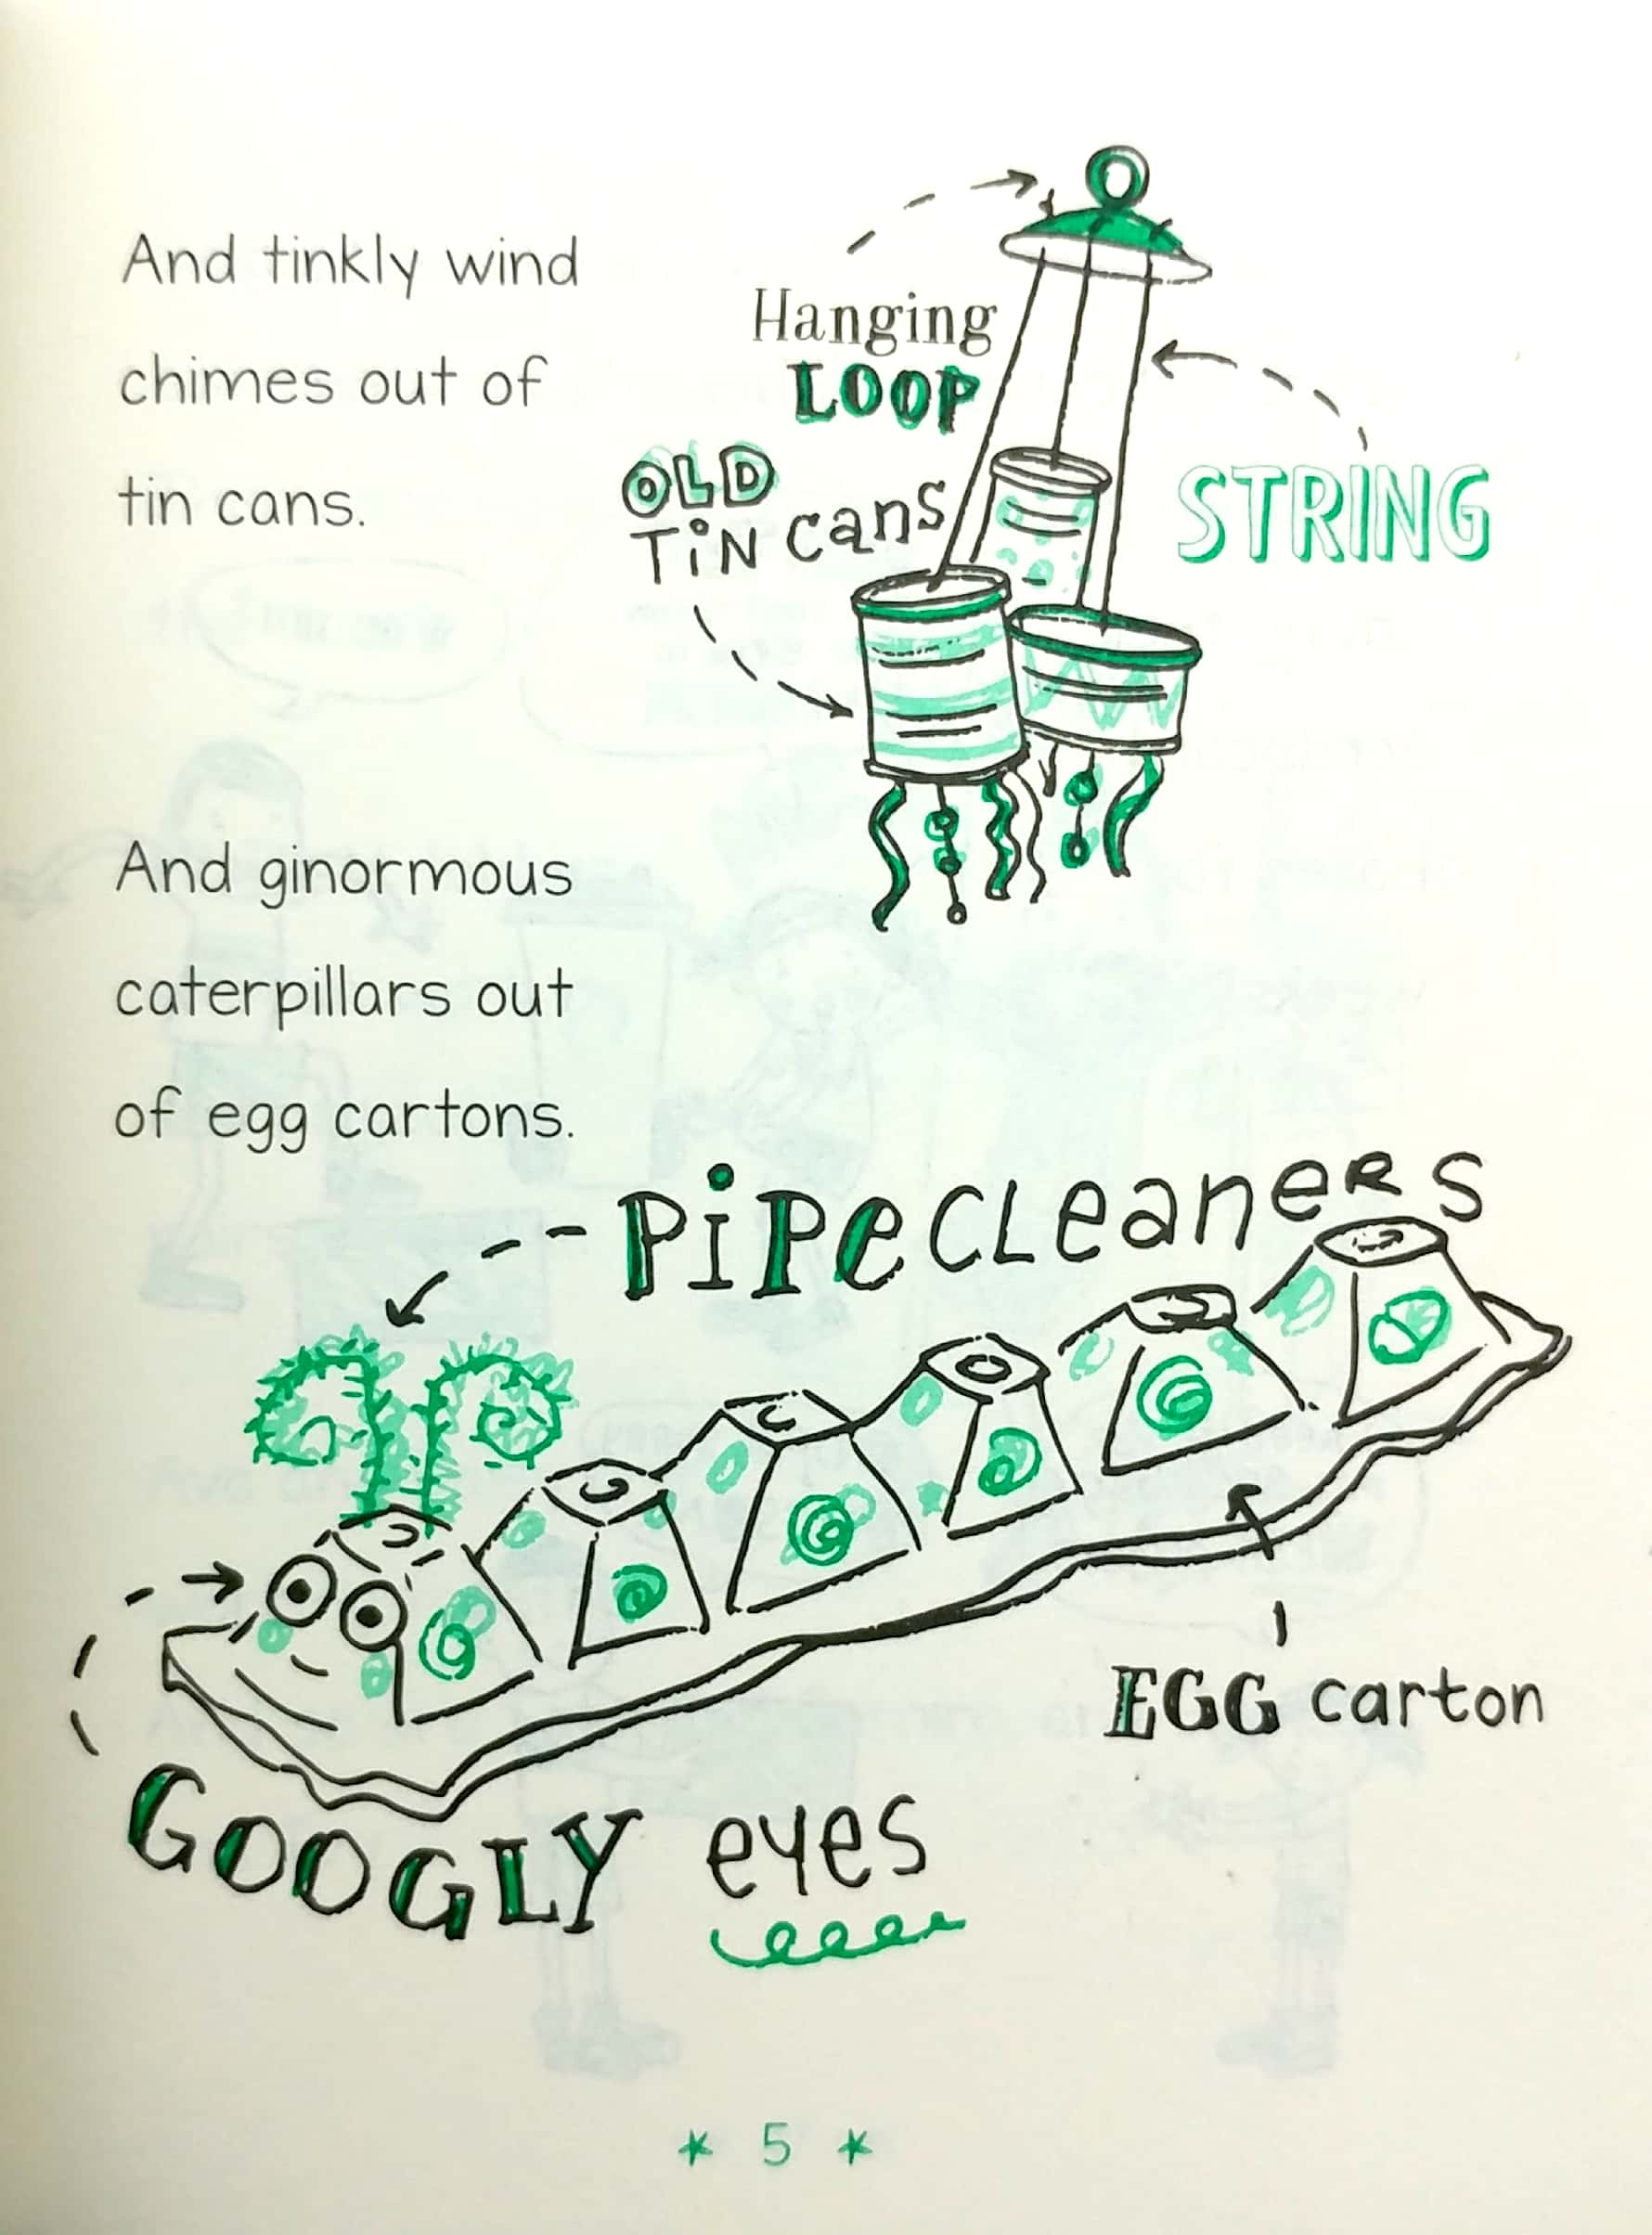 And tinkly wind
chimes out of
tin cans.
Hanging
LOOP
OLD
TiN cans
STRING
And ginormous
caterpillars out
of egg cartons.
PiPe CLeaneRS
EGG carton
GOOGLY eyes
* 5 *